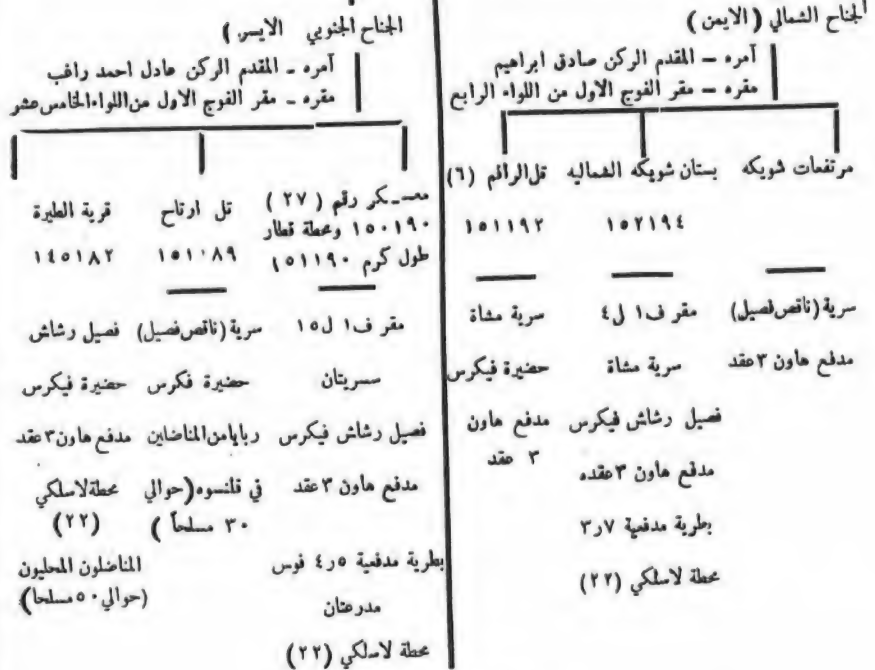 الجناح الشمالي (الايمن)
آمره - المقدم الركن صادق ابراهيم
مقره - مقر الفوج الاول من اللواء الرابع
مرتفعات شويكه
سرية (ناقص فصيل)
مدفع هاون ٣ عقد
بستان شويكه الشماليه
١٥٢١٩٤
مقر ف١ ل٤
سرية مشاة
فصيل رشاش فيكرس
مدفع هاون ٣ عقده
بطرية مدفعية ٣٫٧
محطة لاسلكي (٢٢)
تل الراقم (٦)
١٥١١٩٢
سرية مشاة
حضيرة فيكرس
مدفع هاون
٣ عقد
الجناح الجنوبي الايسر)
آمره - المقدم الركن عادل احمد راغب
مقره - مقر الفوج الاول من اللواء الخامس عشر
معسكر رقم (٢٧)
١٥٠١٩٠ ومحطة قطار
طول كرم ١٥١١٩٠
مقر ف١ ل١٥
سسريتان
فصيل رشاش فيكرس
مدفع هاون ٣ عقد
بطرية مدفعية ٤٫٥ فوس
مدرعتان
محطة لاسلكي (٢٢)
تل ارتاح
١٥١٠٨٩
سرية (ناقص فصيل)
حضيرة فكرس
ربايا من المناضلين
في قلنسوه (حوالي
٣٠ مسلحاً)
قرية الطيرة
١٤٥١٨٢
فصيل رشاش
حضيرة فيكرس
مدفع هاون ٣ عقد
محطة لاسلكي
(٢٢)
المناضلون المحليون
(حوالي ٥٠ مسلحا)